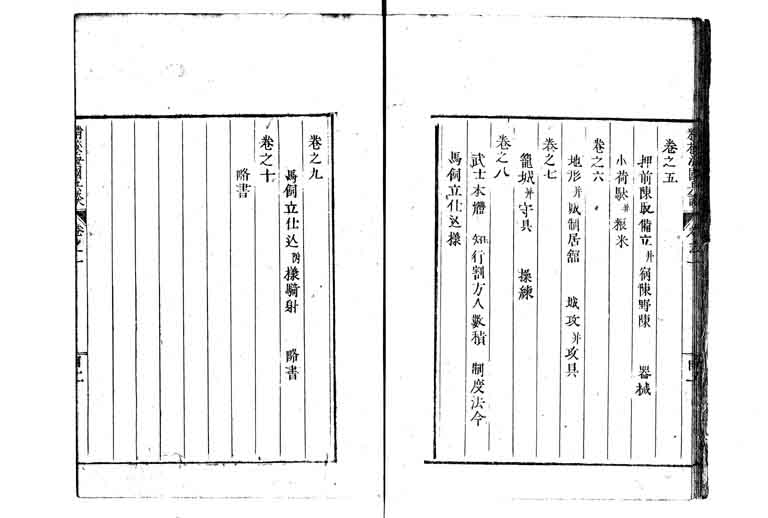 卷之五
押前陳取備立并宿陳野陳 器械
小荷駄并粮米
卷之六
地形并城制居館 城攻并攻具
卷之七
籠城并守具 操練
卷之八
武士本體 知行割方人數積 制度法令
馬飼立仕込樣
卷之九
馬飼立仕込樣騎射 略書
卷之十
略書